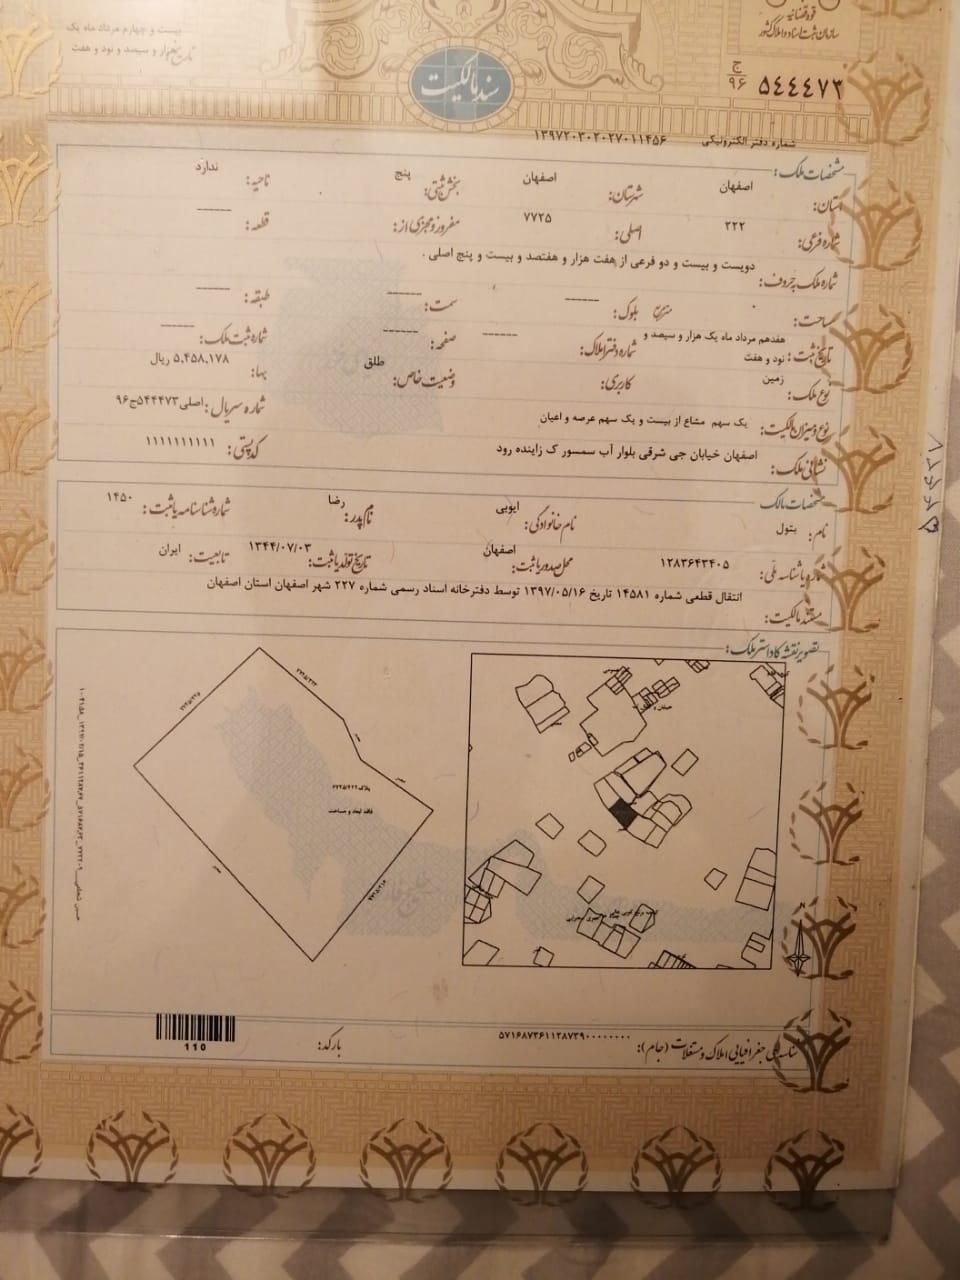 قوه قضائیه
سازمان ثبت اسناد و املاک کشور
بیست و چهارم مرداد ماه یک
هزار و سیصد و نود و هفت
سند مالکیت
ج
۹۶ ۵۴۴۴۷۳
شماره دفتر الکترونیکی ۱۳۹۷۲۰۳۰۲۰۲۷۰۱۱۴۵۶
مشخصات ملک:
استان: اصفهان شهرستان: اصفهان بخش ثبتی: پنج ناحیه: ندارد
شماره فرعی: ۲۲۲ اصلی: ۷۷۲۵ مفروز و مجزی از: قطعه: ------
شماره ملک به حروف: دویست و بیست و دو فرعی از هفت هزار و هفتصد و بیست و پنج اصلی .
مساحت: بلوک: ------ سمت: ------ طبقه: ------
تاریخ ثبت: هفدهم مرداد ماه یک هزار و سیصد و نود و هفت شماره دفتر املاک: ------ صفحه: ------ شماره ثبت ملک: ------
نوع ملک: زمین کاربری: وضعیت خاص: طلق بها: ۵,۴۵۸,۱۷۸ ریال
نوع و میزان مالکیت: یک سهم مشاع از بیست و یک سهم عرصه و اعیان شماره سریال: اصلی۵۴۴۴۷۳ج۹۶
نشانی ملک: اصفهان خیابان جی شرقی بلوار آب سمسور ک زاینده رود کد پستی: ۱۱۱۱۱۱۱۱۱۱
مشخصات مالک
نام: بتول نام خانوادگی: ایوبی نام پدر: رضا شماره شناسنامه یا ثبت: ۱۴۵۰
شماره یا شناسه ملی: ۱۲۸۳۶۴۳۴۰۵ محل صدور یا ثبت: اصفهان تاریخ تولد یا ثبت: ۱۳۴۴/۰۷/۰۳ تابعیت: ایران
مستند مالکیت: انتقال قطعی شماره ۱۴۵۸۱ تاریخ ۱۳۹۷/۰۵/۱۶ توسط دفترخانه اسناد رسمی شماره ۲۲۷ شهر اصفهان استان اصفهان
تصویر نقشه کاداستر ملک:
فاقد ابعاد و مساحت
N
شناسه ملی جغرافیایی املاک و مستغلات (جام): ۵۷۱۶۸۷۳۶۱۱۲۸۷۳۹۰۰۰۰۰۰۰۰۰
بارکد:
110